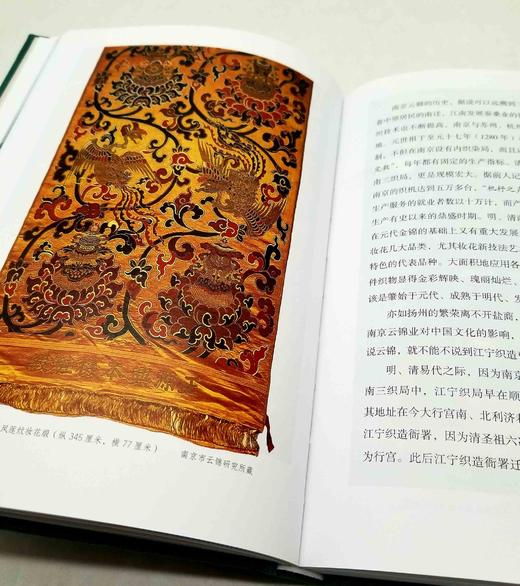 凤莲纹妆花缎（纵 345 厘米，横 77 厘米）
南京市云锦研究所藏
南京云锦的历史，据说可以远溯到
着中原居民的南迁，江南发展蚕桑业的
织技术也不断提高，南京与苏州、杭州
元世祖于至元十七年（1280 年）
制，不但在南京设有内织染局，而且
尤甚”，每年都有固定的生产指标。
南二织局，更是规模宏大。据前人记
南京的织机达到五万多台，“机杼之
生产服务的就业者数以十万计，而产
生产有史以来的鼎盛时期。明、清
在元代金锦的基础上又有重大发展
妆花几大品类，尤其妆花新技法艺
特色的代表品种。大面积地应用各
件织物显得金彩辉映、瑰丽灿烂、
该是肇始于元代、成熟于明代、发
亦如扬州的繁荣离不开盐商，
南京云锦业对中国文化的影响，
说云锦，就不能不说到江宁织造
明、清易代之际，因为南京
南三织局中，江宁织局早在顺
其地址在今大行宫南、北利济
江宁织造衙署，因为清圣祖六
为行宫。此后江宁织造衙署迁